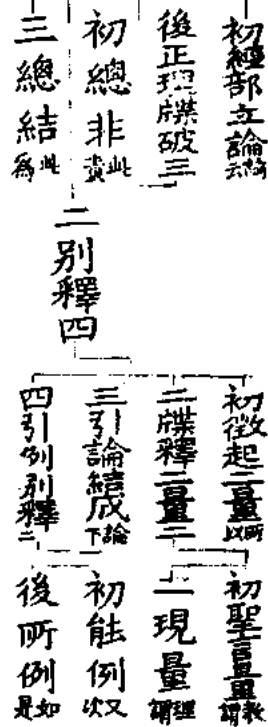 初經部立論云論
後正理牒破三
初總非責此
三總結為此
二別釋四
初徵起二量以所
二牒釋二量二
三引論結成下論
四引例別釋二
初聖言量謂教
一現量謂理
初能例次又
後所例是如